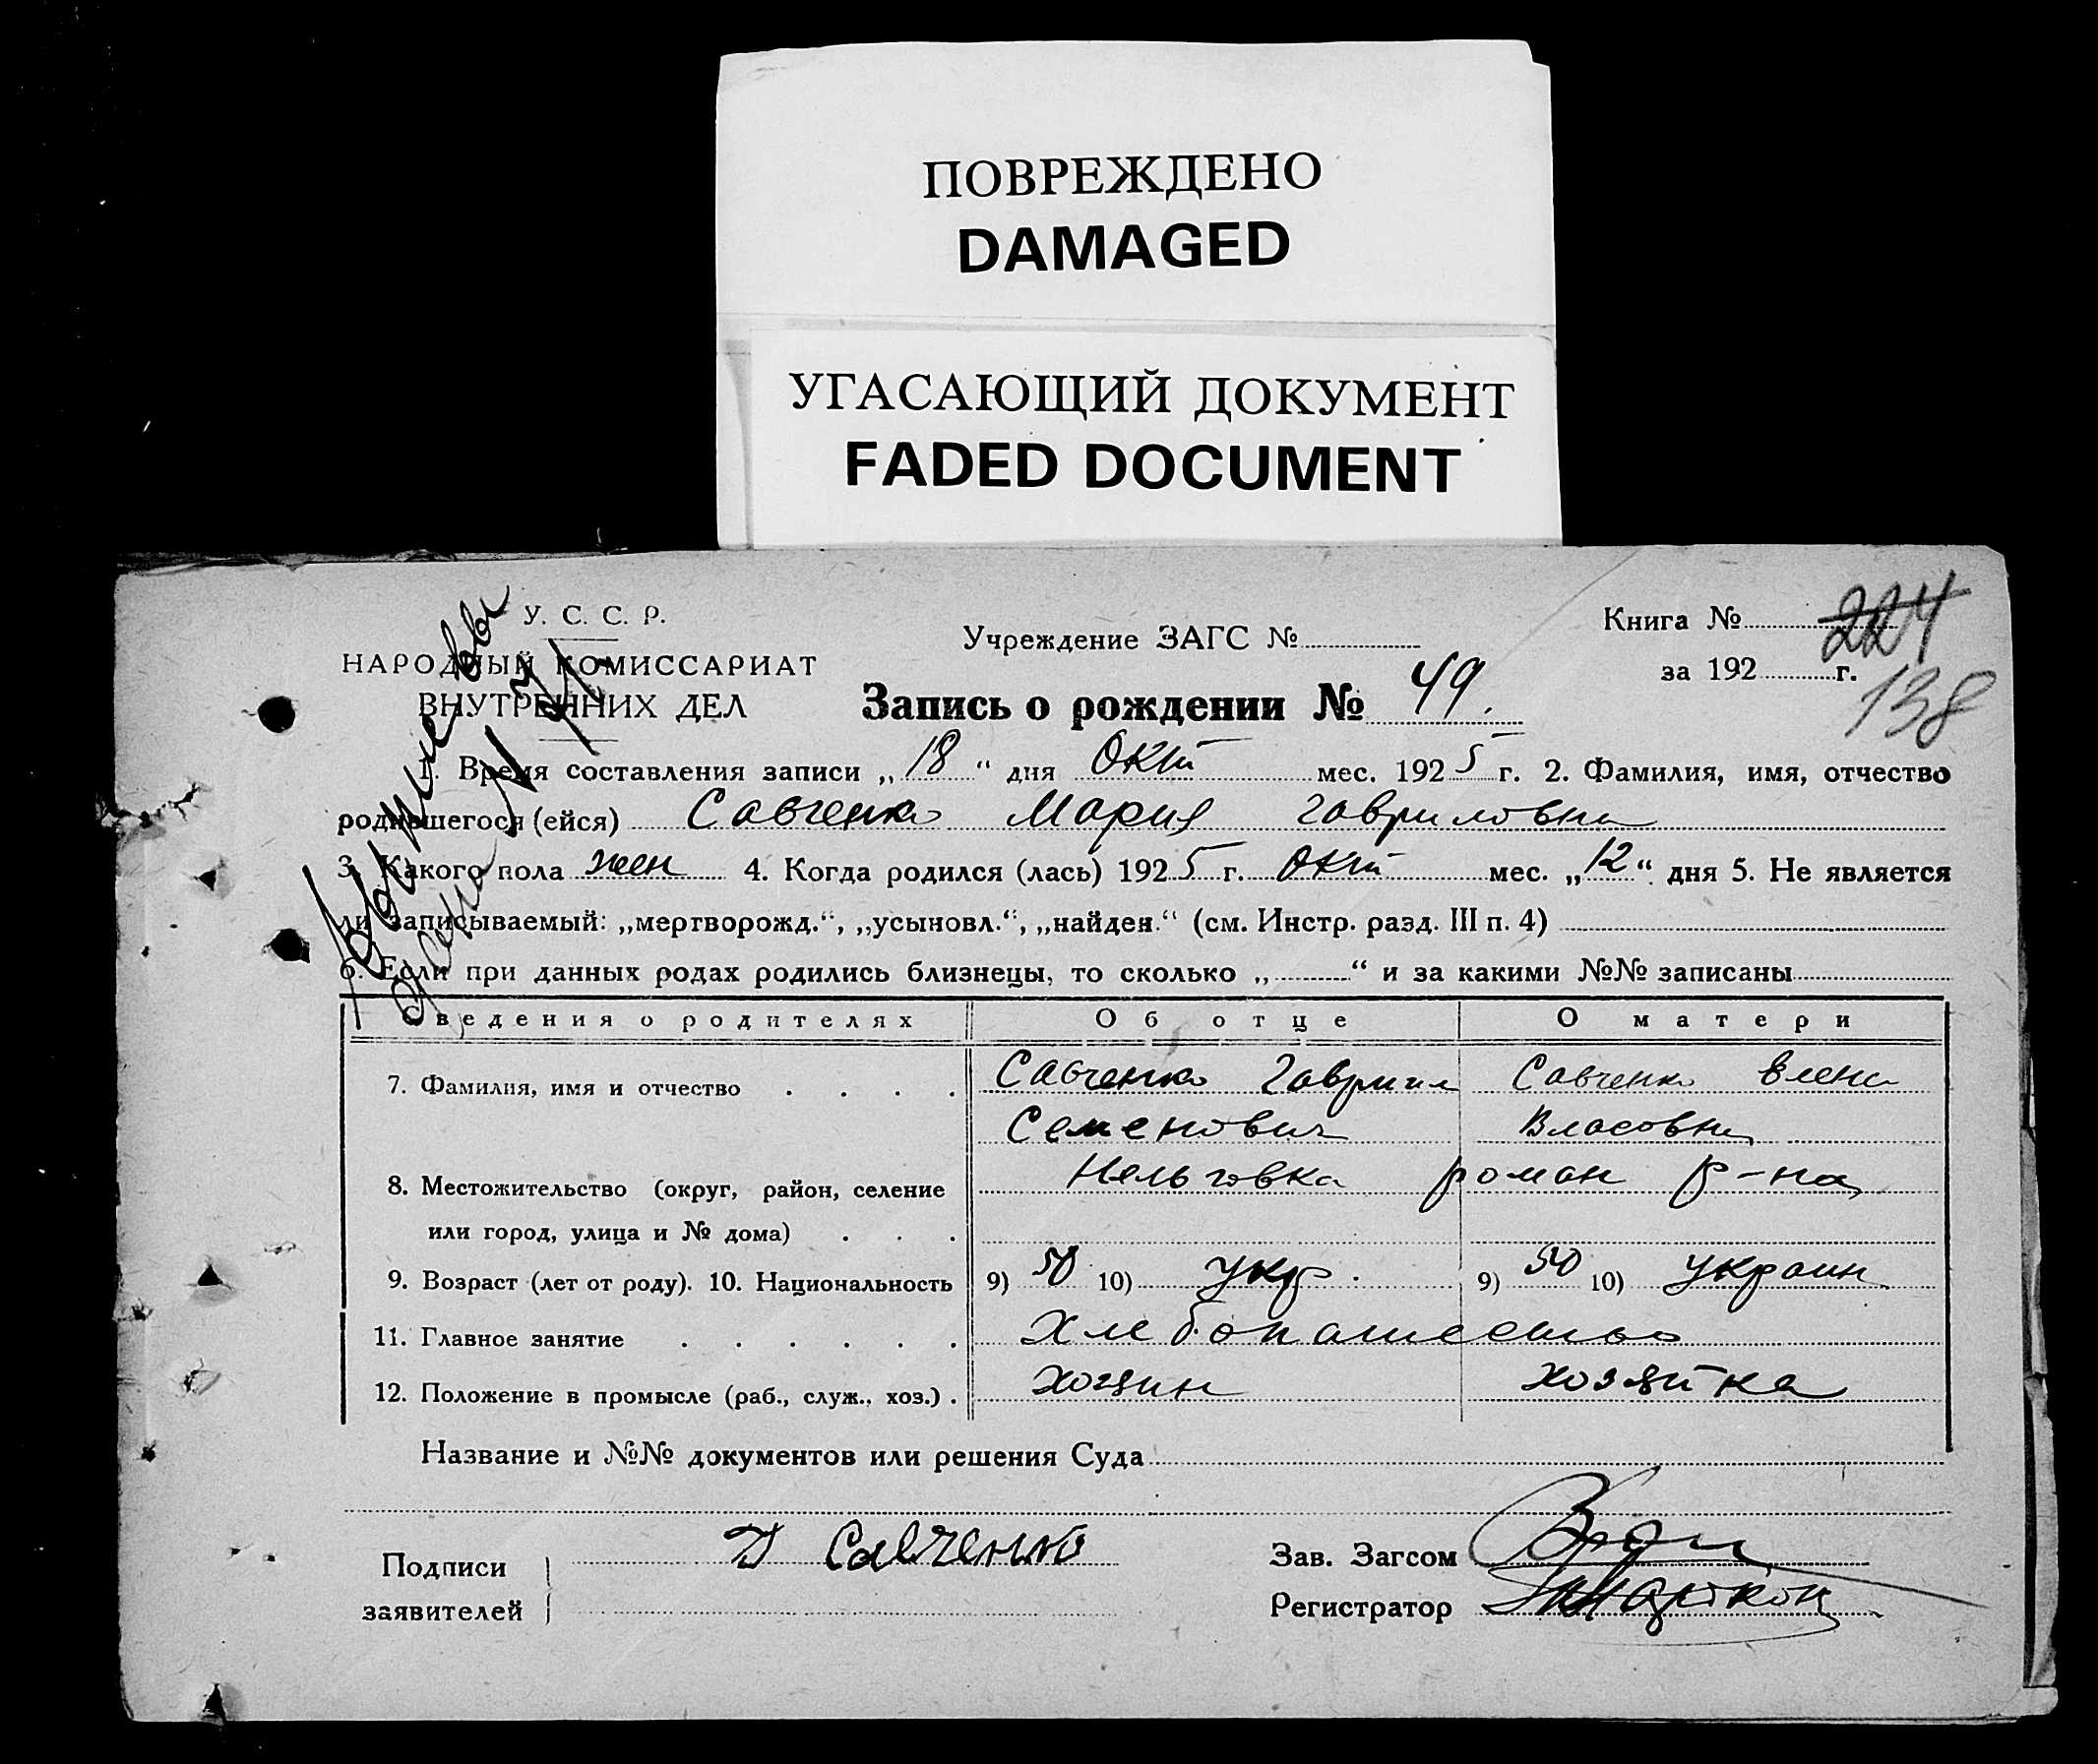 ПОВРЕЖДЕНО
DAMAGED
УГАСАЮЩИЙ ДОКУМЕНТ
FADED DOCUMENT
У. С. С. Р.
НАРОДНЫЙ КОМИССАРИАТ
ВНУТРЕННИХ ДЕЛ
Учреждение ЗАГС №
Книга № 224
за 192 г.
138
Запись о рождении № 49.
1. Время составления записи „18“ дня Окт мес. 1925 г. 2. Фамилия, имя, отчество
родившегося (ейся) Савченко Мария Гавриловна
3. Какого пола жен 4. Когда родился (лась) 1925 г. Окт мес. „12“ дня 5. Не является
ли записываемый: „мертворожд.“, „усыновл.“, „найден.“ (см. Инстр. разд. III п. 4)
6. Если при данных родах родились близнецы, то сколько „ “ и за какими №№ записаны
Сведения о родителях Об отце О матери
7. Фамилия, имя и отчество . . . . Савченко Гавриил Савченко Елена
Семенович Власовна
8. Местожительство (округ, район, селение роман р-на
или город, улица и № дома) . . .
9. Возраст (лет от роду). 10. Национальность 9) 50 10) Укр. 9) 50 10) Украин
11. Главное занятие . . . . . . Хлебопашество
12. Положение в промысле (раб., служ., хоз.) . хозяин хозяйка
Название и №№ документов или решения Суда
Подписи
заявителей
Савченко
Зав. Загсом
Регистратор